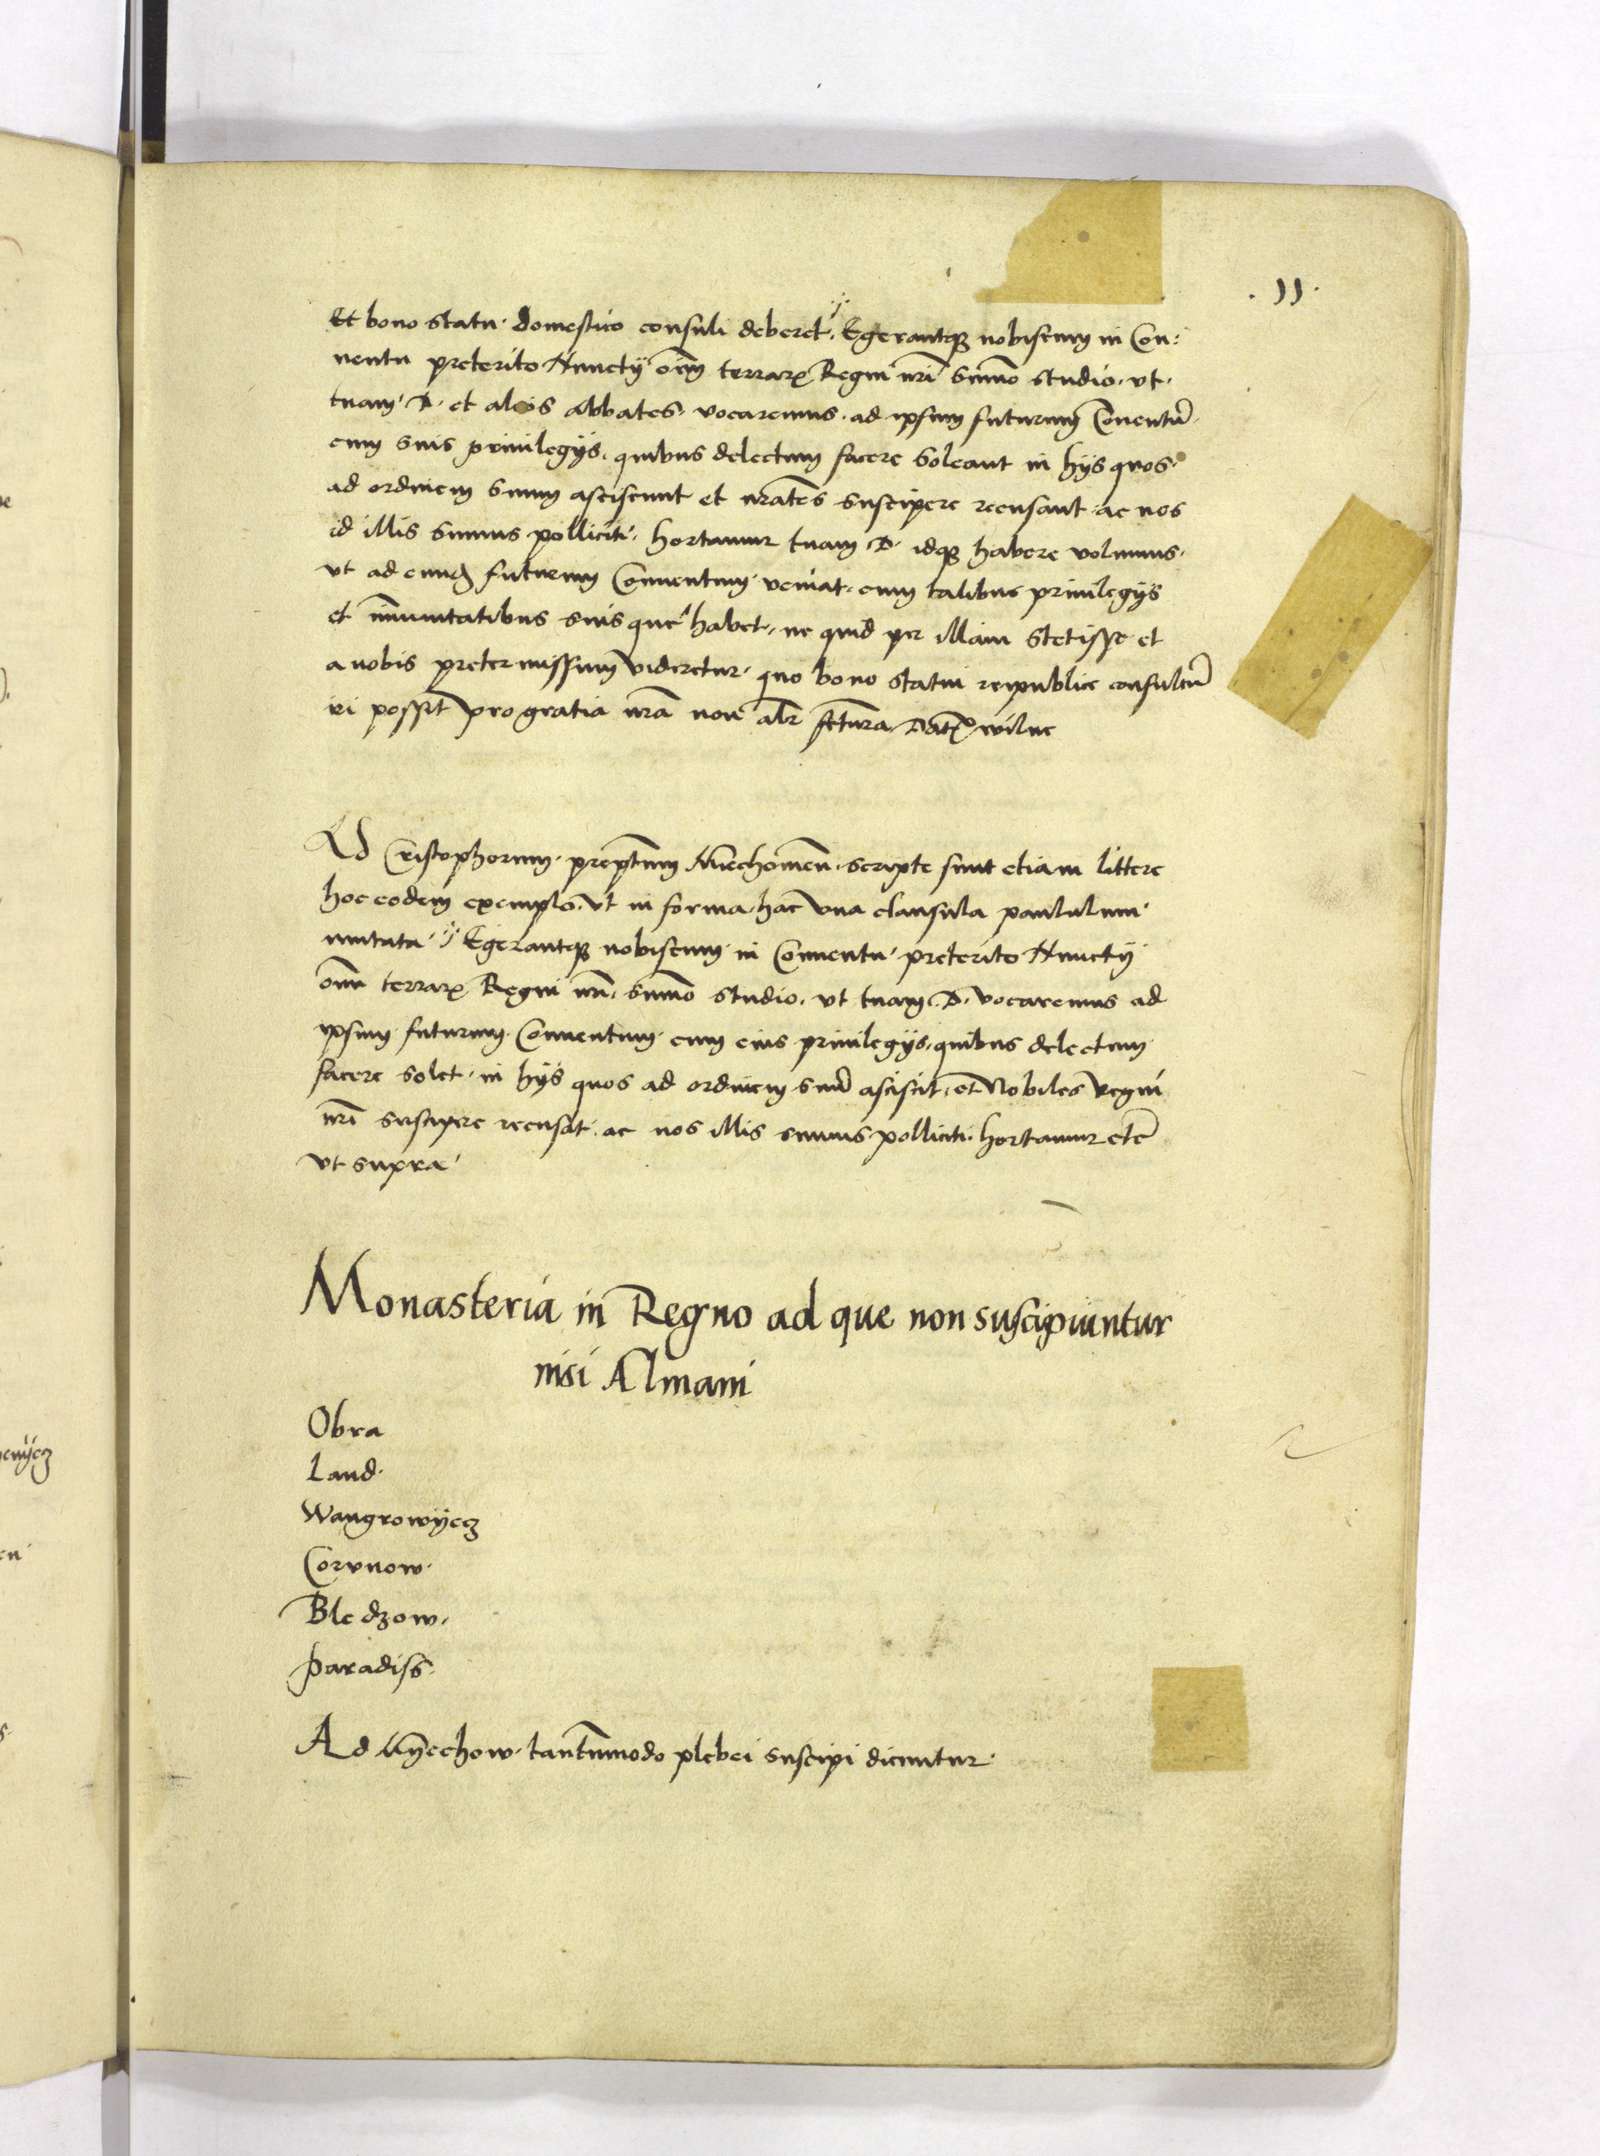 .11.
Et bono statu domestico consuli deberet. Egerantque nobiscum in Con:
uentu preterito Nunctij oīm terrarꝝ Regni nrī summo studio. vt.
tuam. D. et alios Abbates. vocaremus. ad ipsum futurum Conuentū.
cum suis priuilegijs. quibus delectum facere soleant in hijs quos.
ad ordinem suum asciscunt et nrātes suscipere recusant. ac nos
id illis sumus polliciti. hortamur tuam D. idque habere volumus.
vt ad eund futurum Conuentum veniat. cum talibus priuilegijs
et immunitatibus suis que habet. ne quid per illam stetisse et
a nobis pretermissum videretur. quo bono statui reipublice consultū
iri possit pro gratia nrā non alr̄ fctura. Datꝭ wilne
Ad Cristophorum. prepttum Miechouien. scripte sunt etiam littere
hoc eodem exemplo. vt in forma. hac vna clausula paululum
mutata. Egerantque nobiscum in Conuentu preterito Nunctij
oīm terrarꝝ Regni nrī. summo studio. vt tuam D. vocaremus ad
ipsum futurum Conuentum cum eius priuilegijs. quibus delectum
facere solet. in hijs quos ad ordinem suū asciscit. et Nobiles regni
nrī suscipere recusat. ac nos illis sumus polliciti. hortamur etc̄
vt supra
Monasteria in Regno ad que non suscipiuntur
nisi Almani
Obra
Land.
Wangrowijecz
Corunow.
Bledzow.
Paradiss.
Ad Myechow. tantummodo plebei suscipi dicuntur.